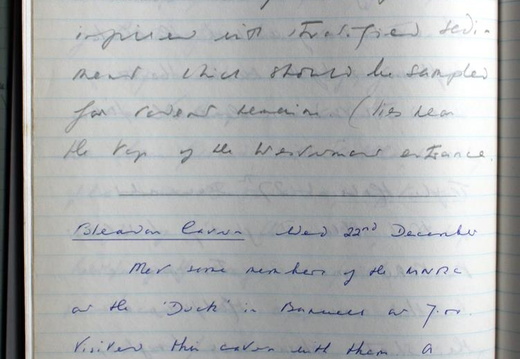 infilled with stratified sedi-
ment which should be sampled
for rodent remains. (lies near
the top of the Westernmost entrance.
Bleadon Cavern Wed 22nd December
Met some members of the MNRC
at the 'Duck' in Banwell at 7.00.
Visited the cavern with them. A